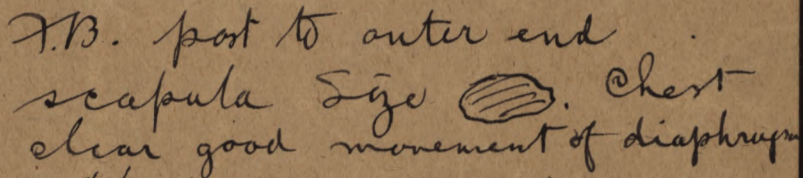 F.B. post to outer end
scapula Size . Chest
clear good movement of diaphragm